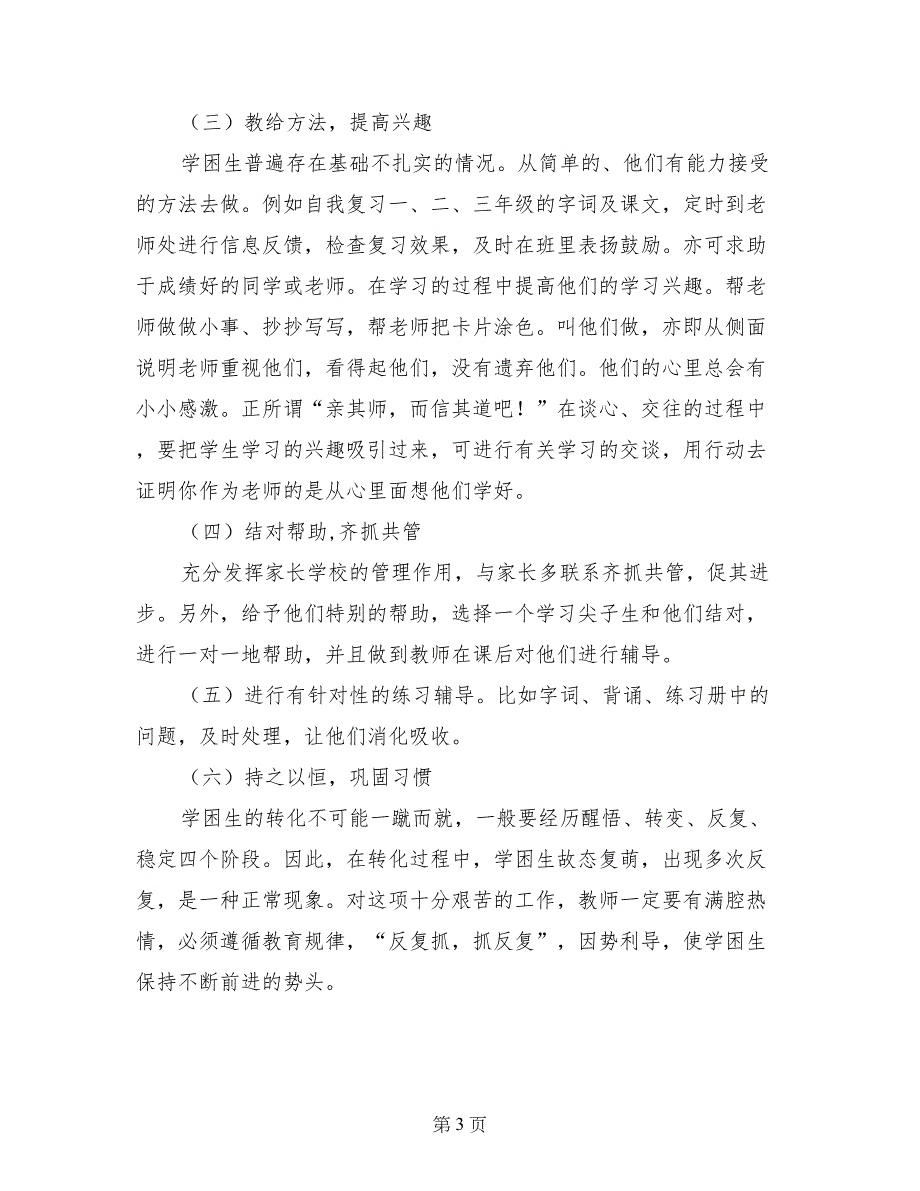 （三）教给方法，提高兴趣
学困生普遍存在基础不扎实的情况。从简单的、他们有能力接受
的方法去做。例如自我复习一、二、三年级的字词及课文，定时到老
师处进行信息反馈，检查复习效果，及时在班里表扬鼓励。亦可求助
于成绩好的同学或老师。在学习的过程中提高他们的学习兴趣。帮老
师做做小事、抄抄写写，帮老师把卡片涂色。叫他们做，亦即从侧面
说明老师重视他们，看得起他们，没有遗弃他们。他们的心里总会有
小小感激。正所谓“亲其师，而信其道吧！”在谈心、交往的过程中
，要把学生学习的兴趣吸引过来，可进行有关学习的交谈，用行动去
证明你作为老师的是从心里面想他们学好。
（四）结对帮助,齐抓共管
充分发挥家长学校的管理作用，与家长多联系齐抓共管，促其进
步。另外，给予他们特别的帮助，选择一个学习尖子生和他们结对，
进行一对一地帮助，并且做到教师在课后对他们进行辅导。
（五）进行有针对性的练习辅导。比如字词、背诵、练习册中的
问题，及时处理，让他们消化吸收。
（六）持之以恒，巩固习惯
学困生的转化不可能一蹴而就，一般要经历醒悟、转变、反复、
稳定四个阶段。因此，在转化过程中，学困生故态复萌，出现多次反
复，是一种正常现象。对这项十分艰苦的工作，教师一定要有满腔热
情，必须遵循教育规律，“反复抓，抓反复”，因势利导，使学困生
保持不断前进的势头。
第 3 页